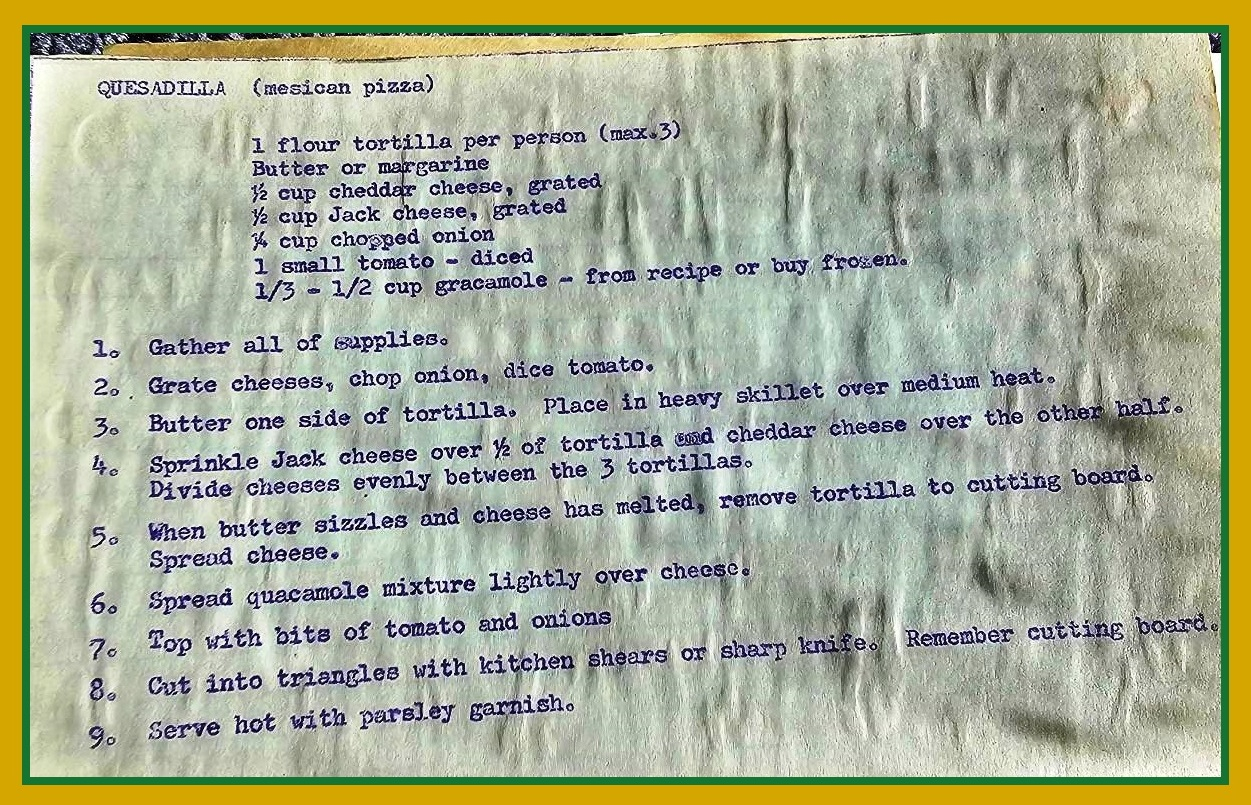 QUESADILLA (mesican pizza)
1 flour tortilla per person (max.3)
Butter or margarine
½ cup cheddar cheese, grated
½ cup Jack cheese, grated
¼ cup chopped onion
1 small tomato - diced
1/3 - 1/2 cup gracamole - from recipe or buy frozen.
1. Gather all of supplies.
2. Grate cheeses, chop onion, dice tomato.
3. Butter one side of tortilla. Place in heavy skillet over medium heat.
4. Sprinkle Jack cheese over ½ of tortilla and cheddar cheese over the other half.
Divide cheeses evenly between the 3 tortillas.
5. When butter sizzles and cheese has melted, remove tortilla to cutting board.
Spread cheese.
6. Spread quacamole mixture lightly over cheese.
7. Top with bits of tomato and onions
8. Cut into triangles with kitchen shears or sharp knife. Remember cutting board.
9. Serve hot with parsley garnish.